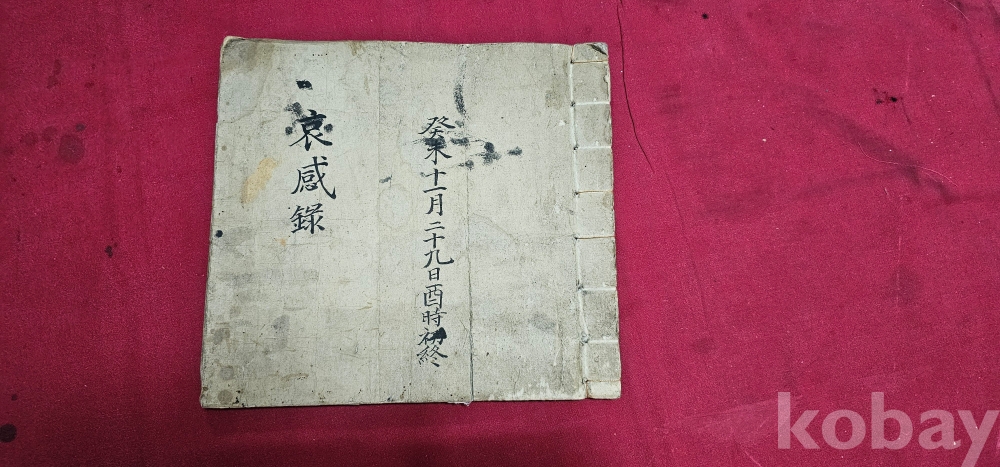 癸未十一月二十九日酉時初終
哀感錄
kobay